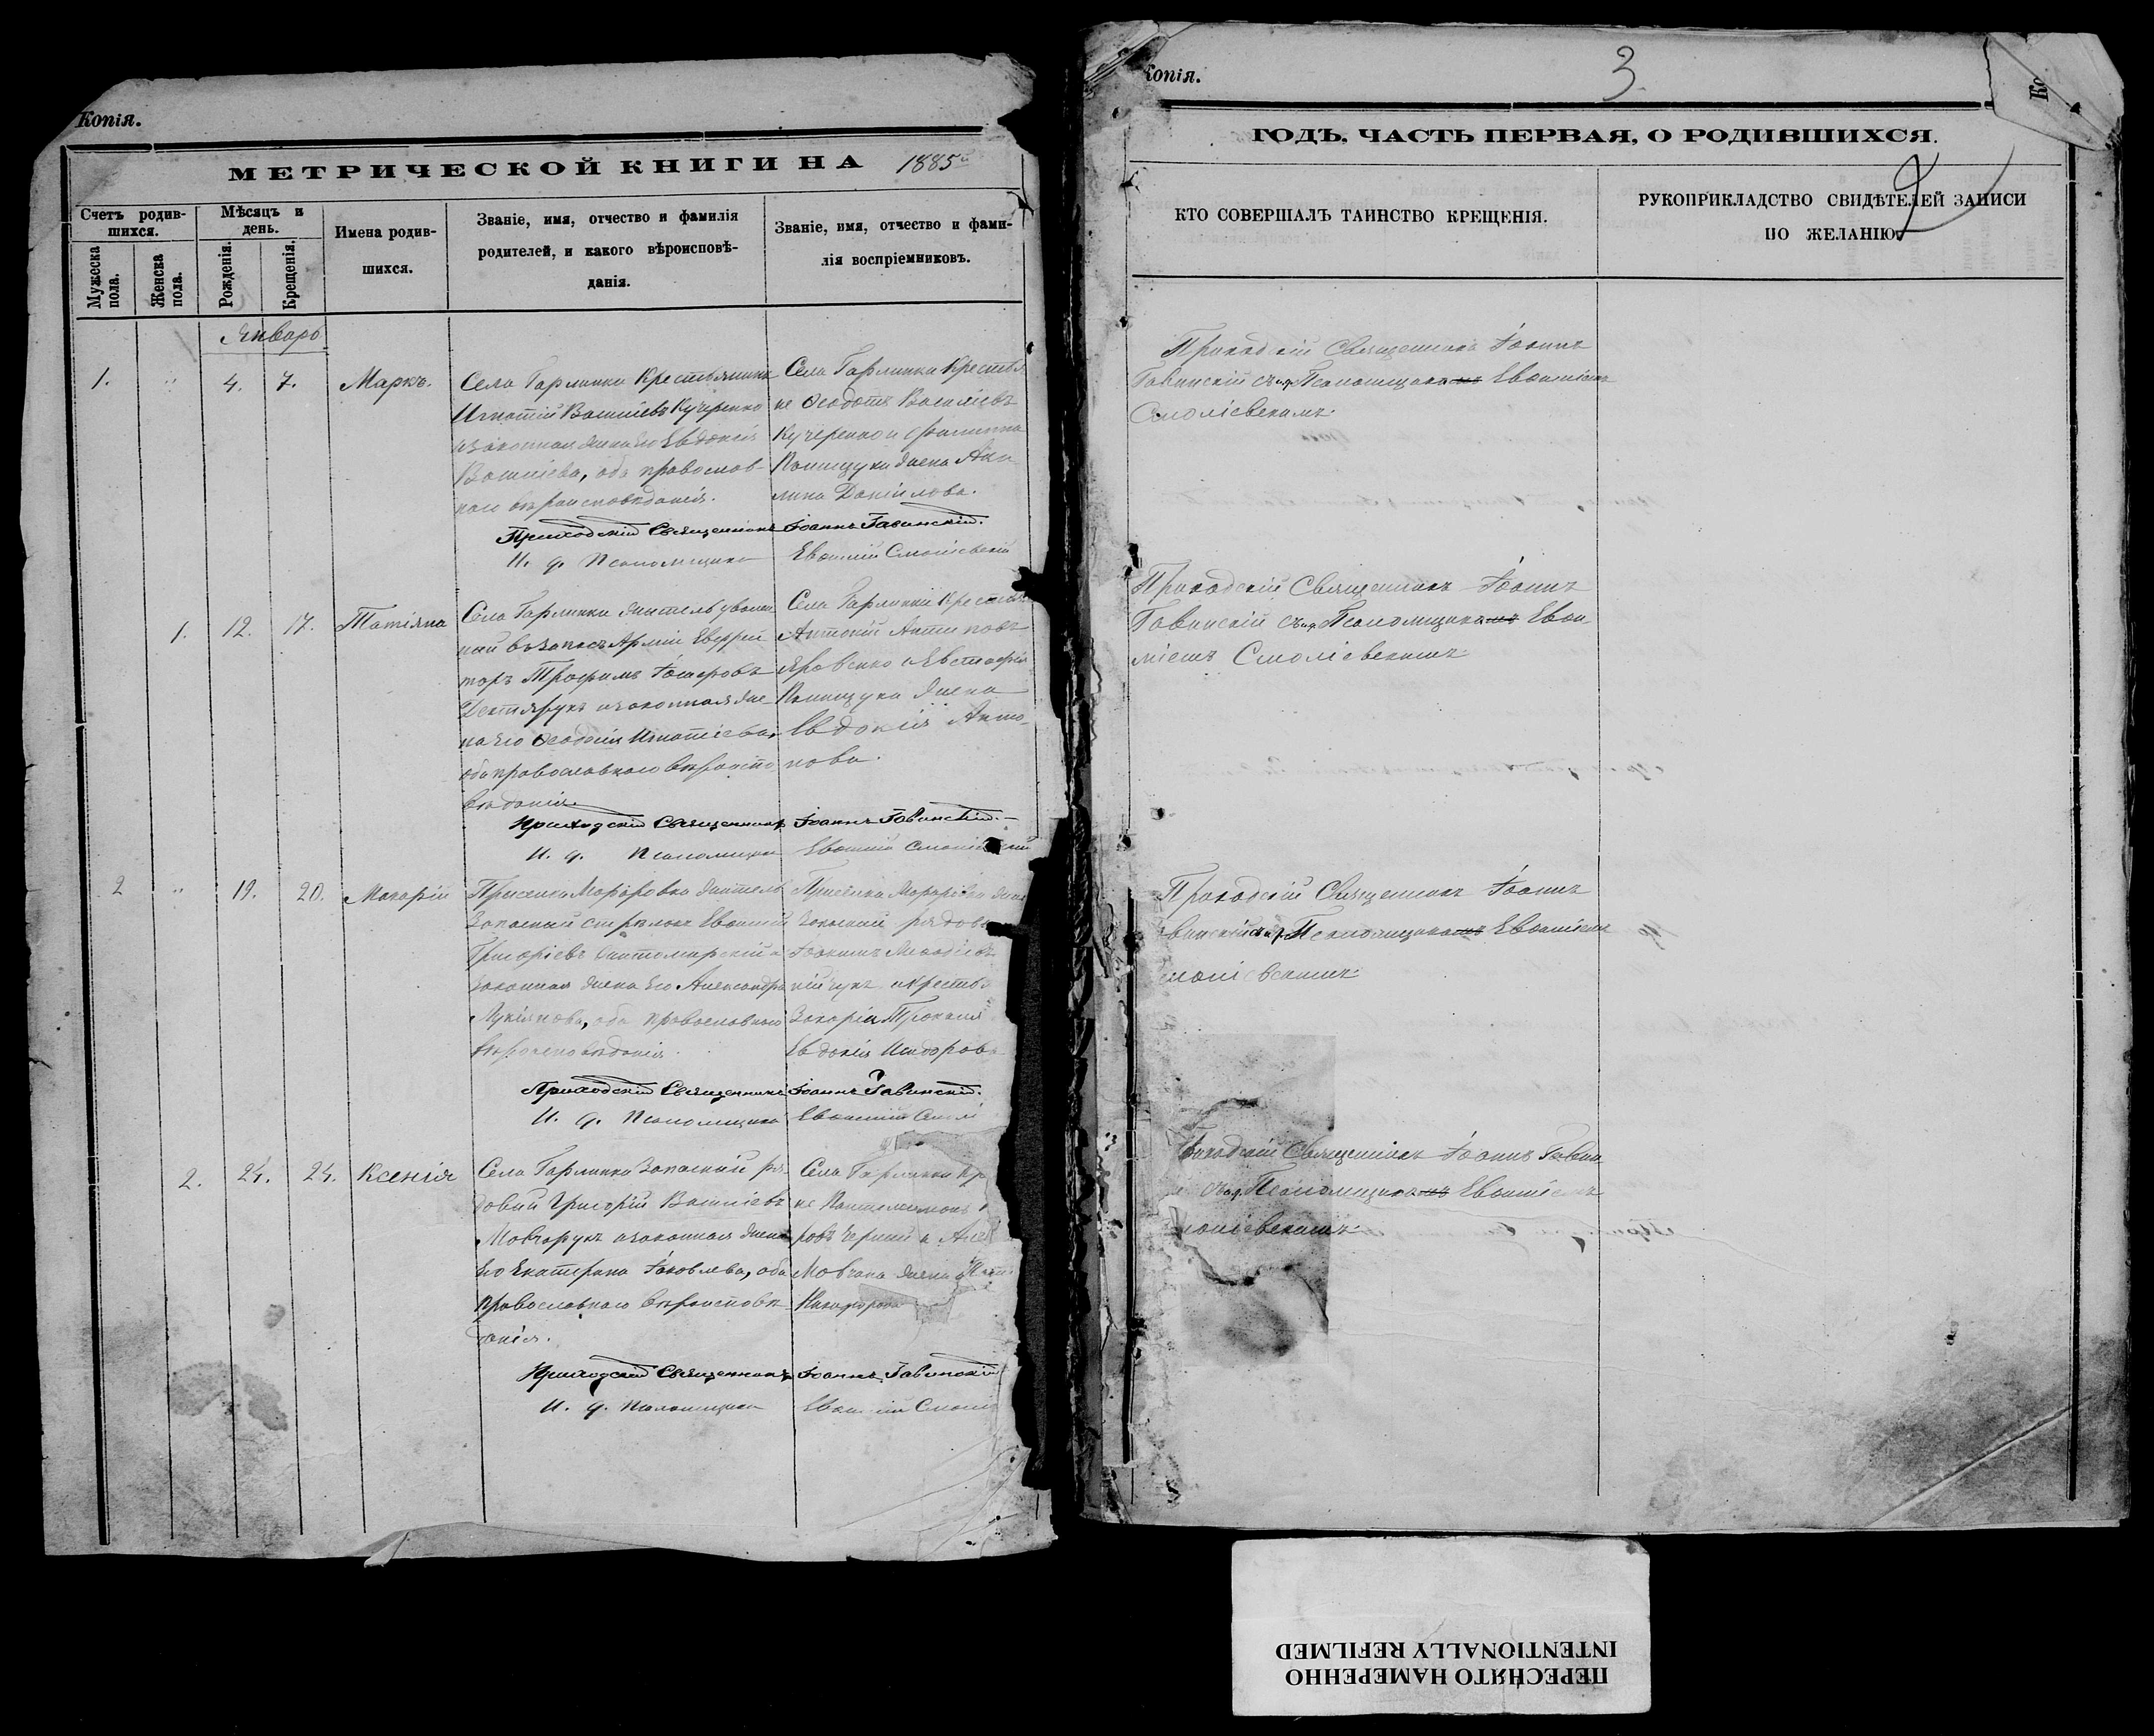 Копія.
МЕТРИЧЕСКОЙ КНИГИ НА 1885й
Счетъ родив-
шихся.
Мѣсяцъ и
день.
Имена родив-
шихся.
Званіе, имя, отчество и фамилія
родителей, и какого вѣроисповѣ-
данія.
Званіе, имя, отчество и фами-
лія воспріемниковъ.
Мужеска
пола.
Женска
пола.
Рожденія.
Крещенія.
Январь
1. " 4. 7. Маркъ.
Села Гарлинки Крестьянинъ
Игнатій Василіевъ Кучеренко
и законная жена его Евдокія
Василіева, оба православ-
наго вѣроисповѣданія.
Села Гарлинки Крестья
не Ѳеодотъ Василіевъ
Кучеренко и Филиппа
Полищука жена Аку-
лина Даніилова.
Приходскій Священникъ Іоаннъ Гавинскій.
И. д. Псаломщика Евѳимій Смоліевскій
1. 12. 17. Татіяна
Села Гарлинки житель уволен
ный въ запасъ Арміи Ефрей
торъ Трофимъ
и законная же
на его Ѳеодосія Игнатіева,
оба православнаго вѣроиспо
вѣданія.
Села Гарлинки Крестья
Антоній Антиповъ
Яровенко и Евстафія
Полищука жена
Евдокія Анто-
нова.
Приходскій Священникъ Іоаннъ Гавинскій.
И. д. Псаломщика Евѳимій
2 " 19. 20. Макарій
Присёлка Мораровка житель
Запасный стрѣлокъ Евѳимій
Григоріевъ Житомирскій и
законная жена его Александра
Лукіянова, оба православнаго
вѣроисповѣданія.
Присёлка Мораровка
Запасный рядов
Іоакимъ
и крестья
Захарія
Евдокія Исидоров
Приходскій Священникъ Іоаннъ Гавинскій.
И. д. Псаломщика Евѳимій Смолі
2. 24. 24. Ксенія
Села Гарлинки Запасный ря-
довый Григорій Василіевъ
Мовчорукъ и законная жена
его Екатерина Іаковлева, оба
православнаго вѣроисповѣ
данія.
Села Гарлинки Кр
не Пантелеимонъ
ровъ Черный и Але
Мовчана жена
Никифорова
Приходскій Священникъ Іоаннъ Гавинскій
И. д. Псаломщика Евѳимій Смолі
Копія.
3
ГОДЪ, ЧАСТЬ ПЕРВАЯ, О РОДИВШИХСЯ.
2
КТО СОВЕРШАЛЪ ТАИНСТВО КРЕЩЕНІЯ.
РУКОПРИКЛАДСТВО СВИДѢТЕЛЕЙ ЗАПИСИ
ПО ЖЕЛАНІЮ.
Приходскій Священникъ Іоаннъ
Гавинскій съ и.д. Псаломщика Евѳиміемъ
Смоліевскимъ.
Приходскій Священникъ Іоаннъ
Гавинскій съ и.д. Псаломщика Евѳи-
міемъ Смоліевскимъ.
Приходскій Священникъ Іоаннъ
винскій съ и.д. Псаломщика Евѳиміемъ
моліевскимъ.
иходскій Священникъ Іоаннъ Гавин
съ и.д. Псаломщика Евѳиміемъ
моліевскимъ.
ПЕРЕСНЯТО НАМЕРЕННО
INTENTIONALLY REFILMED